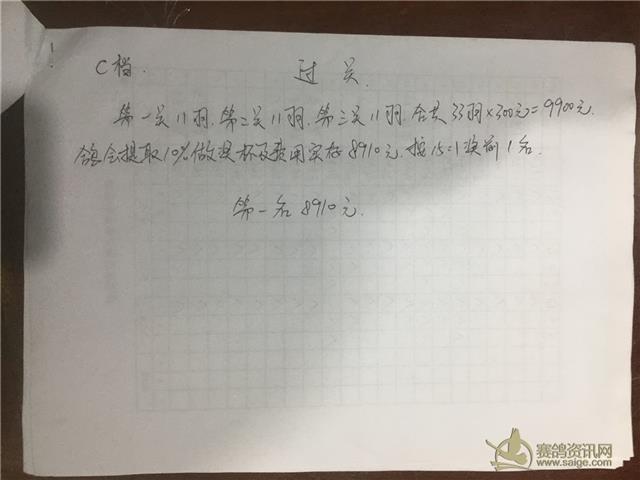 C档. 过关.
第一关11羽.第二关11羽.第三关11羽.合共33羽×300元=9900元.
鸽会提取10%做奖杯及费用实存8910元.按15:1奖前1名.
第一名8910元.
赛鸽资讯网
www.saige.com